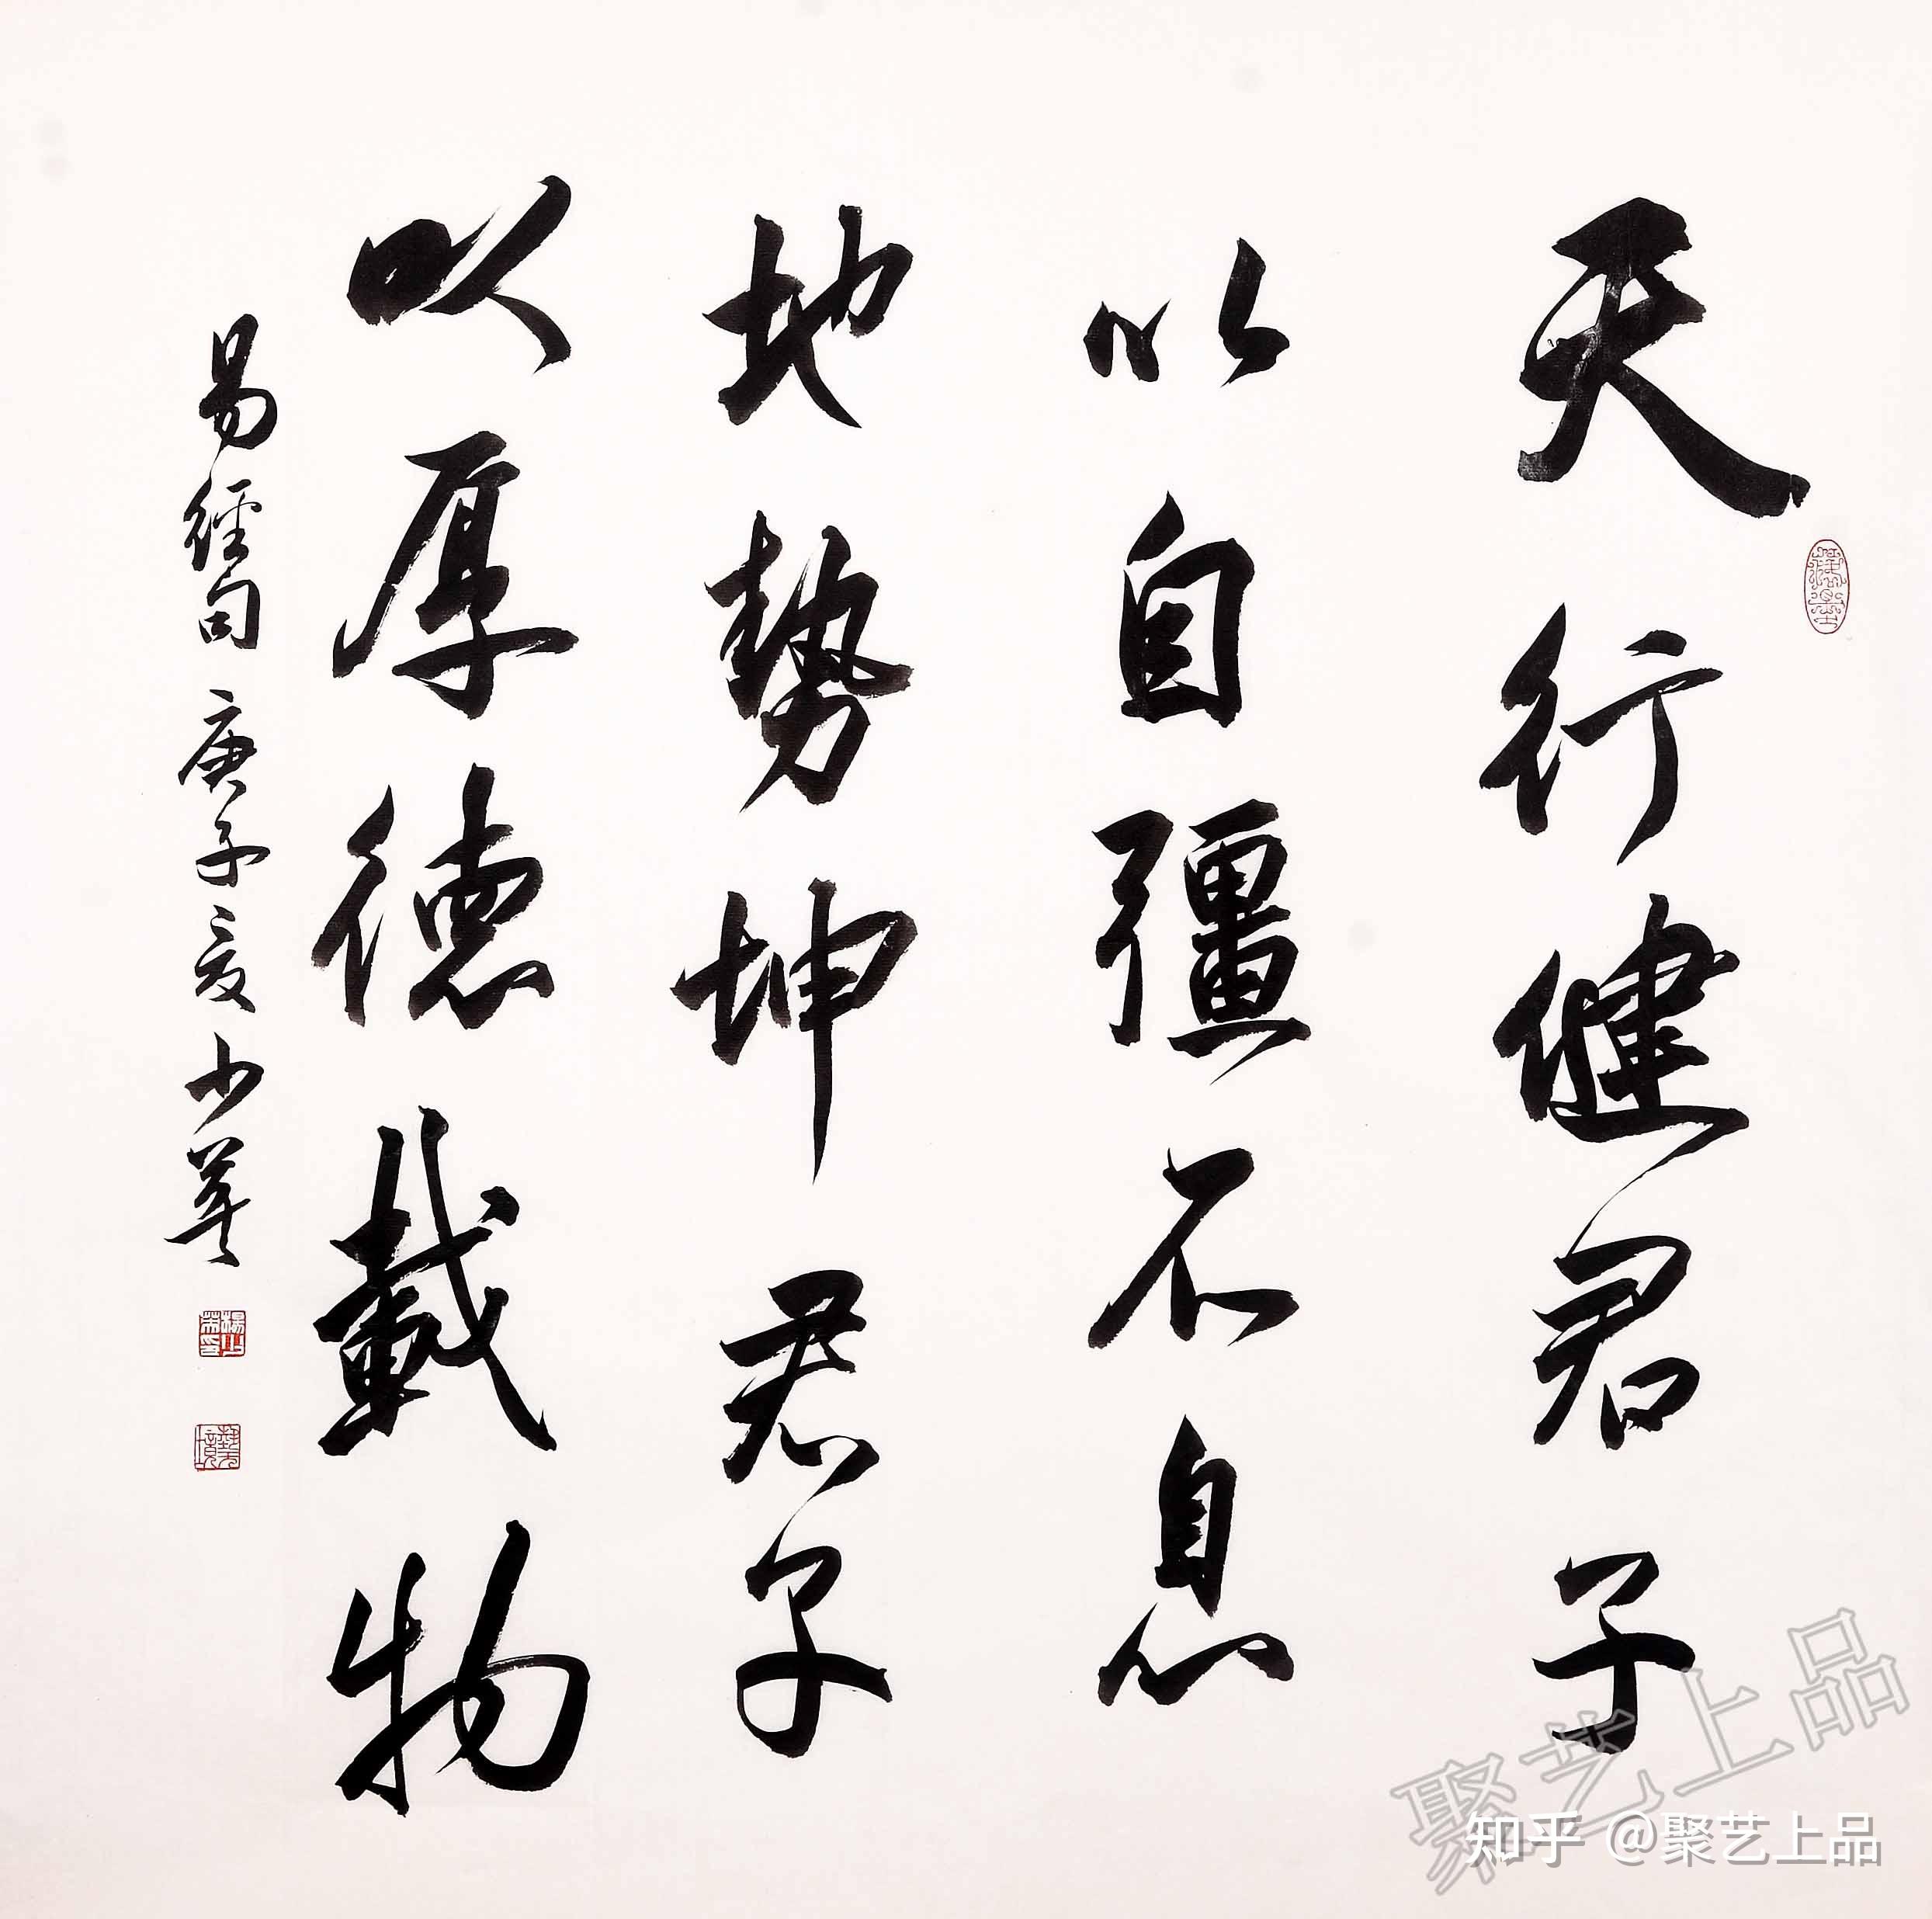 天行健君子
以自彊不息
地勢坤君子
以厚德載物
易經句 庚子夏 少
藝境
聚艺上品
知乎 @聚艺上品